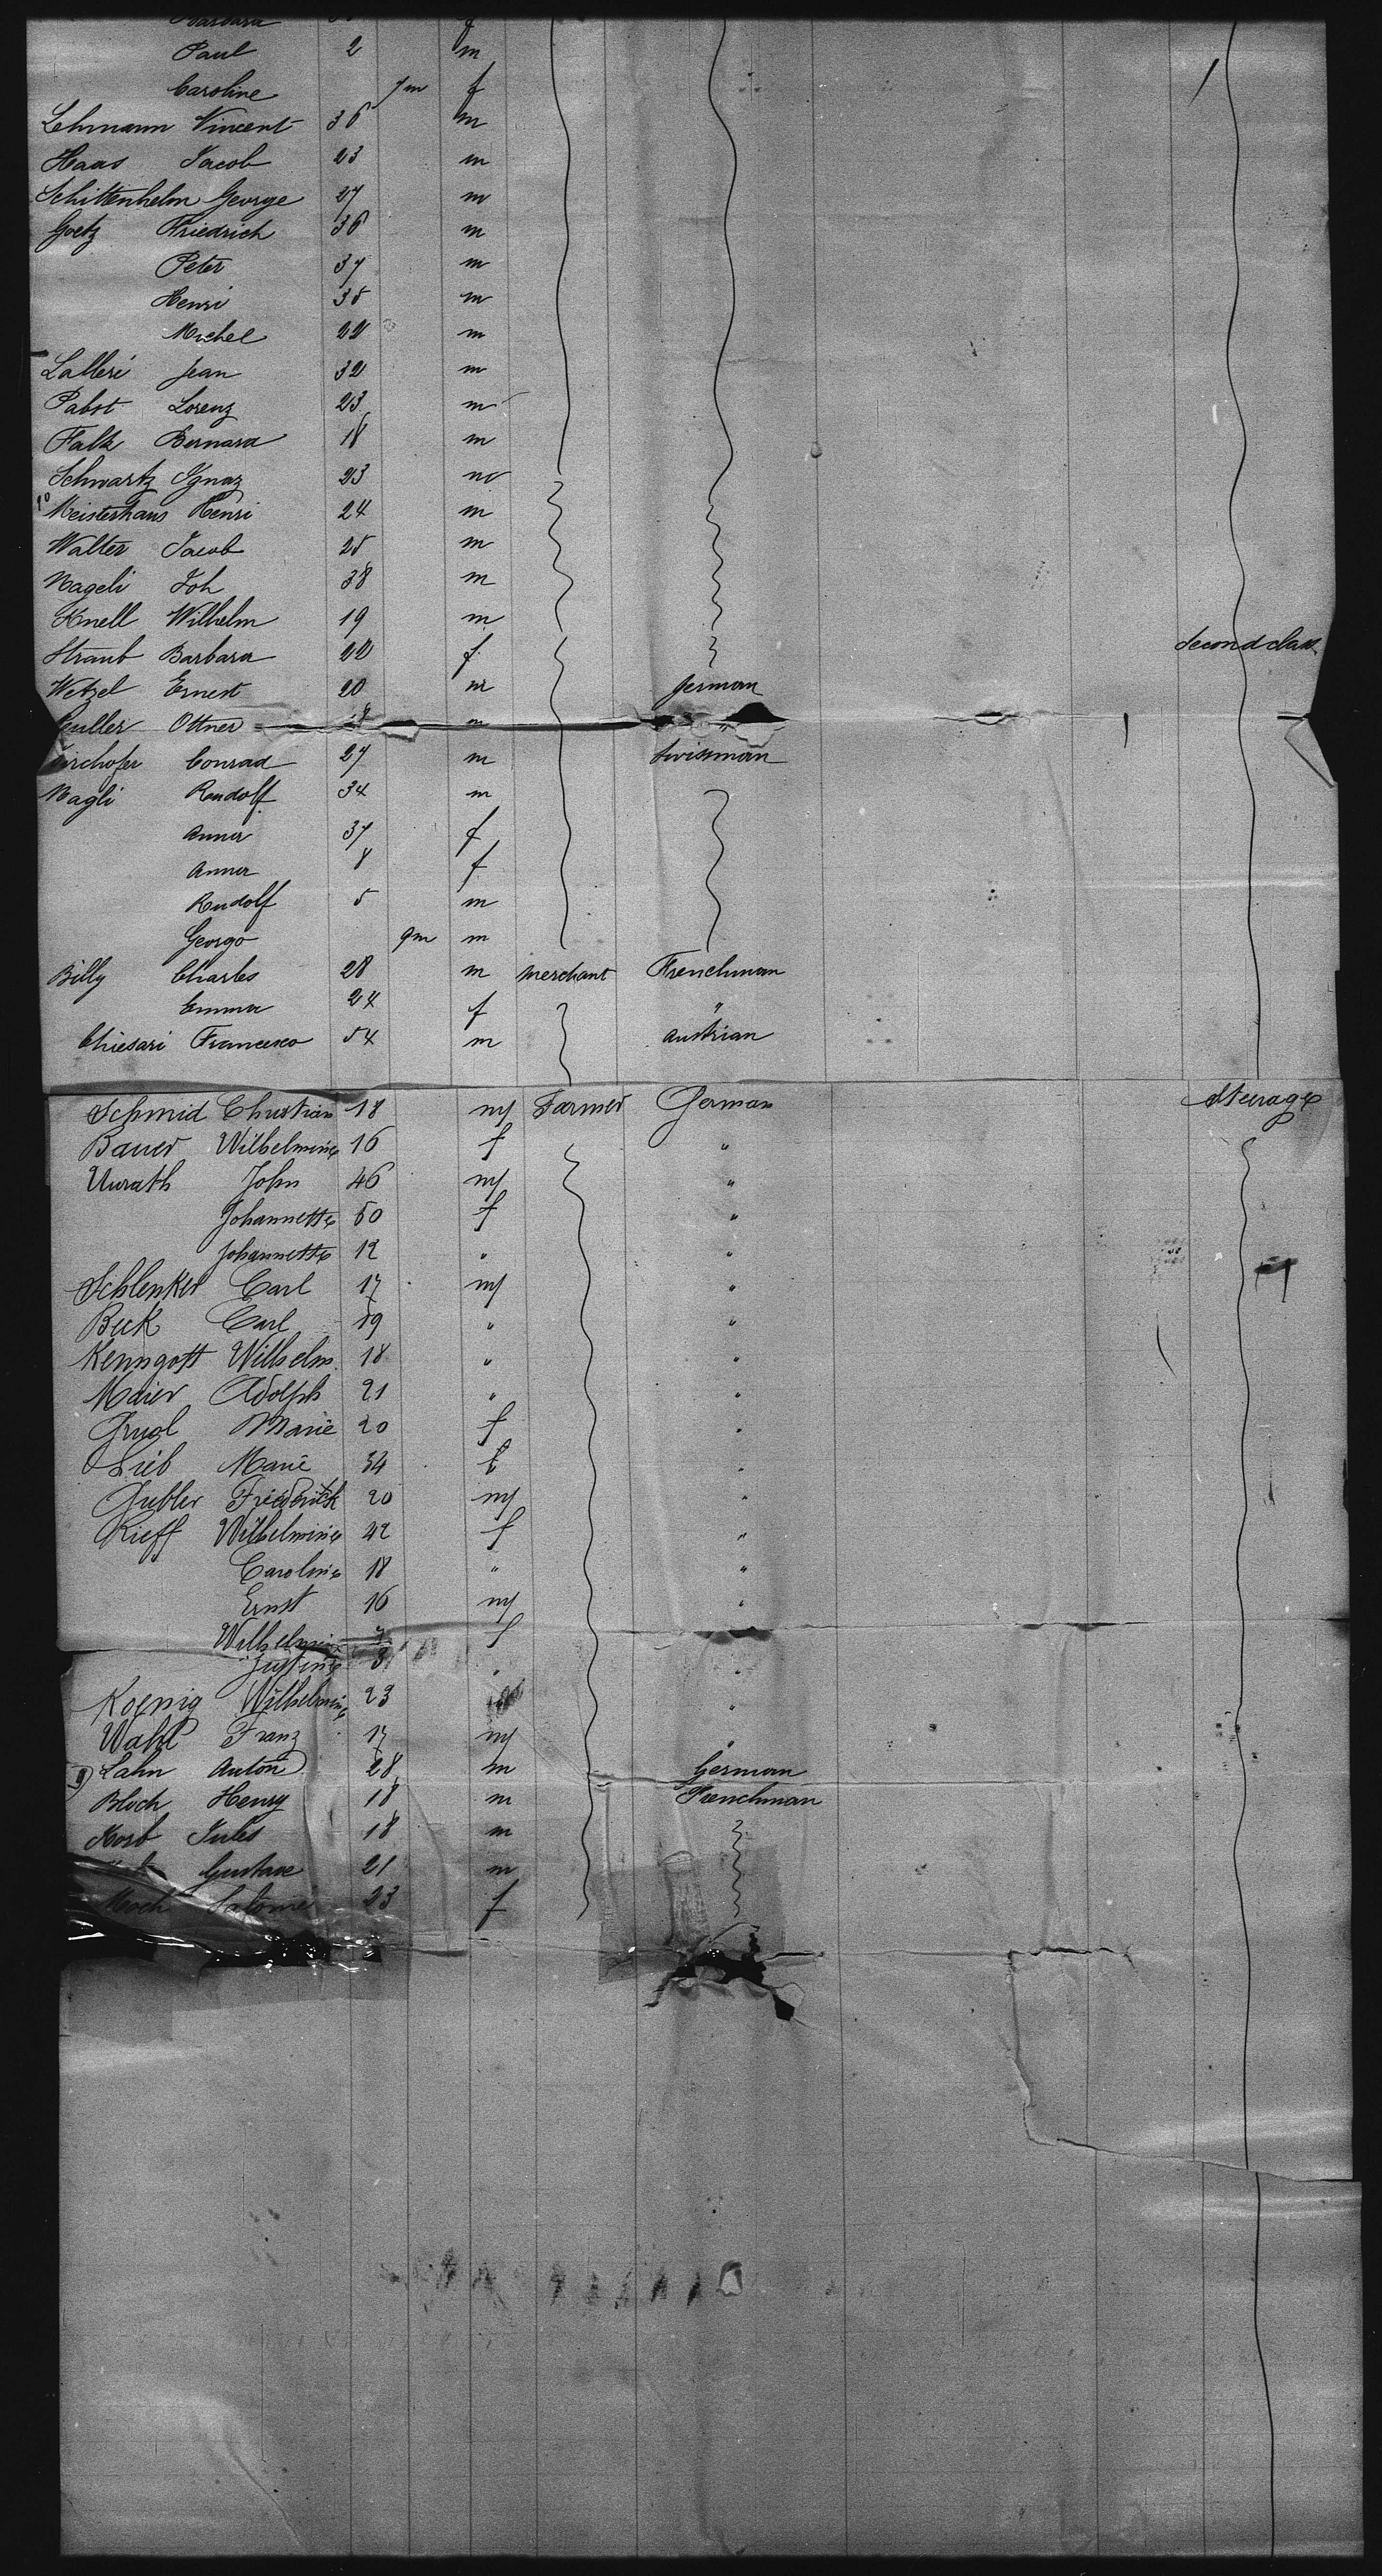 Barbara f
Paul 2 m
Caroline 7m f
Lehmann Vincent 36 m
Haas Jacob 23 m
Schittenhelm George 27 m
Goetz Friedrich 36 m
Peter 37 m
Henri 35 m
Michel 22 m
Lalleri Jean 32 m
Pabst Lorenz 23 m
Falk Bernard 18 m
Schwartz Ignaz 23 m
Meisterhans Henri 24 m
Walter Jacob 25 m
Nageli Joh 38 m
Knell Wilhelm 19 m
Straub Barbara 22 f Second class
Wetzel Ernest 20 m German
Ottner m "
Conrad 27 m Swissman
Nagli Rudolf 34 m
Anna 37 f
Anna 8 f
Rudolf 5 m
George 9m m
Billy Charles 28 m merchant Frenchman
Emma 24 f "
Chiesari Francesco 54 m Austrian
Schmid Christian 18 m Farmer German Steerage
Bauer Wilhelmine 16 f "
Unrath John 46 m "
Johannette 50 f "
Johannette 12 " "
Schlenker Carl 17 m "
Beck Carl 19 " "
Kenngott Wilhelm 18 " "
Maier Adolph 21 " "
Marie 20 f "
Lieb Marie 34 f "
Gubler Friederick 20 m "
Kieff Wilhelmine 42 f "
Caroline 18 " "
Ernst 16 m "
Wilhelmine 7 f
Justine 3 " "
Koenig Wilhelmine 23 "
Wahl Franz 17 m "
Lahn Anton 28 m German
Bloch Henry 18 m Frenchman
Korb Jules 18 m
Gustave 21 m
Moch Salome 23 f